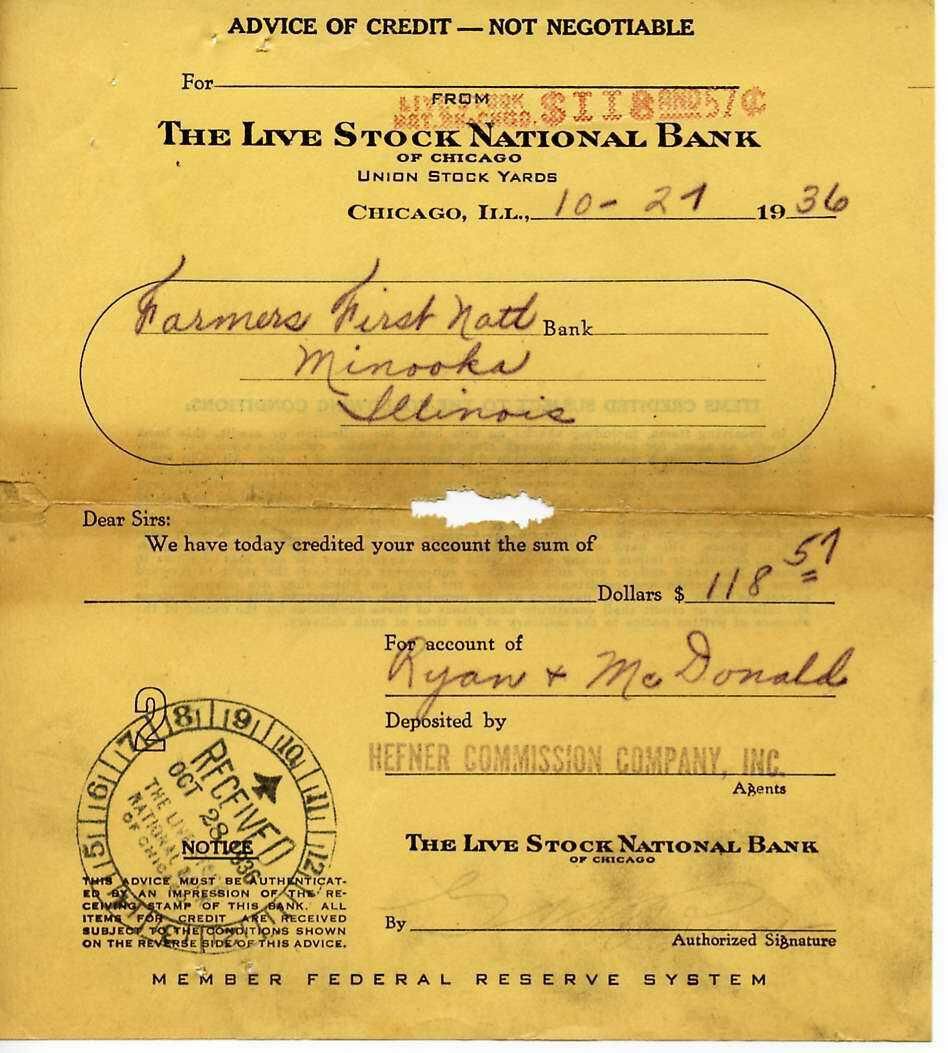 ADVICE OF CREDIT — NOT NEGOTIABLE
For
FROM
LIVE STOCK $118 AND 57¢
NAT. BK. CHGO.
THE LIVE STOCK NATIONAL BANK
OF CHICAGO
UNION STOCK YARDS
CHICAGO, ILL., 10-27 1936
Farmers First Natl Bank
Minooka
Illinois
Dear Sirs:
We have today credited your account the sum of
Dollars $ 118 57
For account of
Ryan + McDonald
Deposited by
HEFNER COMMISSION COMPANY, INC.
Agents
THE LIVE STOCK NATIONAL BANK
OF CHICAGO
By
Authorized Signature
2
5 6 7 8 9 10 11 12
RECEIVED
OCT 28 1936
THE LIVE STOCK
NATIONAL BANK
OF CHICAGO
NOTICE
THIS ADVICE MUST BE AUTHENTICAT-
ED BY AN IMPRESSION OF THE RE-
CEIVING STAMP OF THIS BANK. ALL
ITEMS FOR CREDIT ARE RECEIVED
SUBJECT TO THE CONDITIONS SHOWN
ON THE REVERSE SIDE OF THIS ADVICE.
MEMBER FEDERAL RESERVE SYSTEM